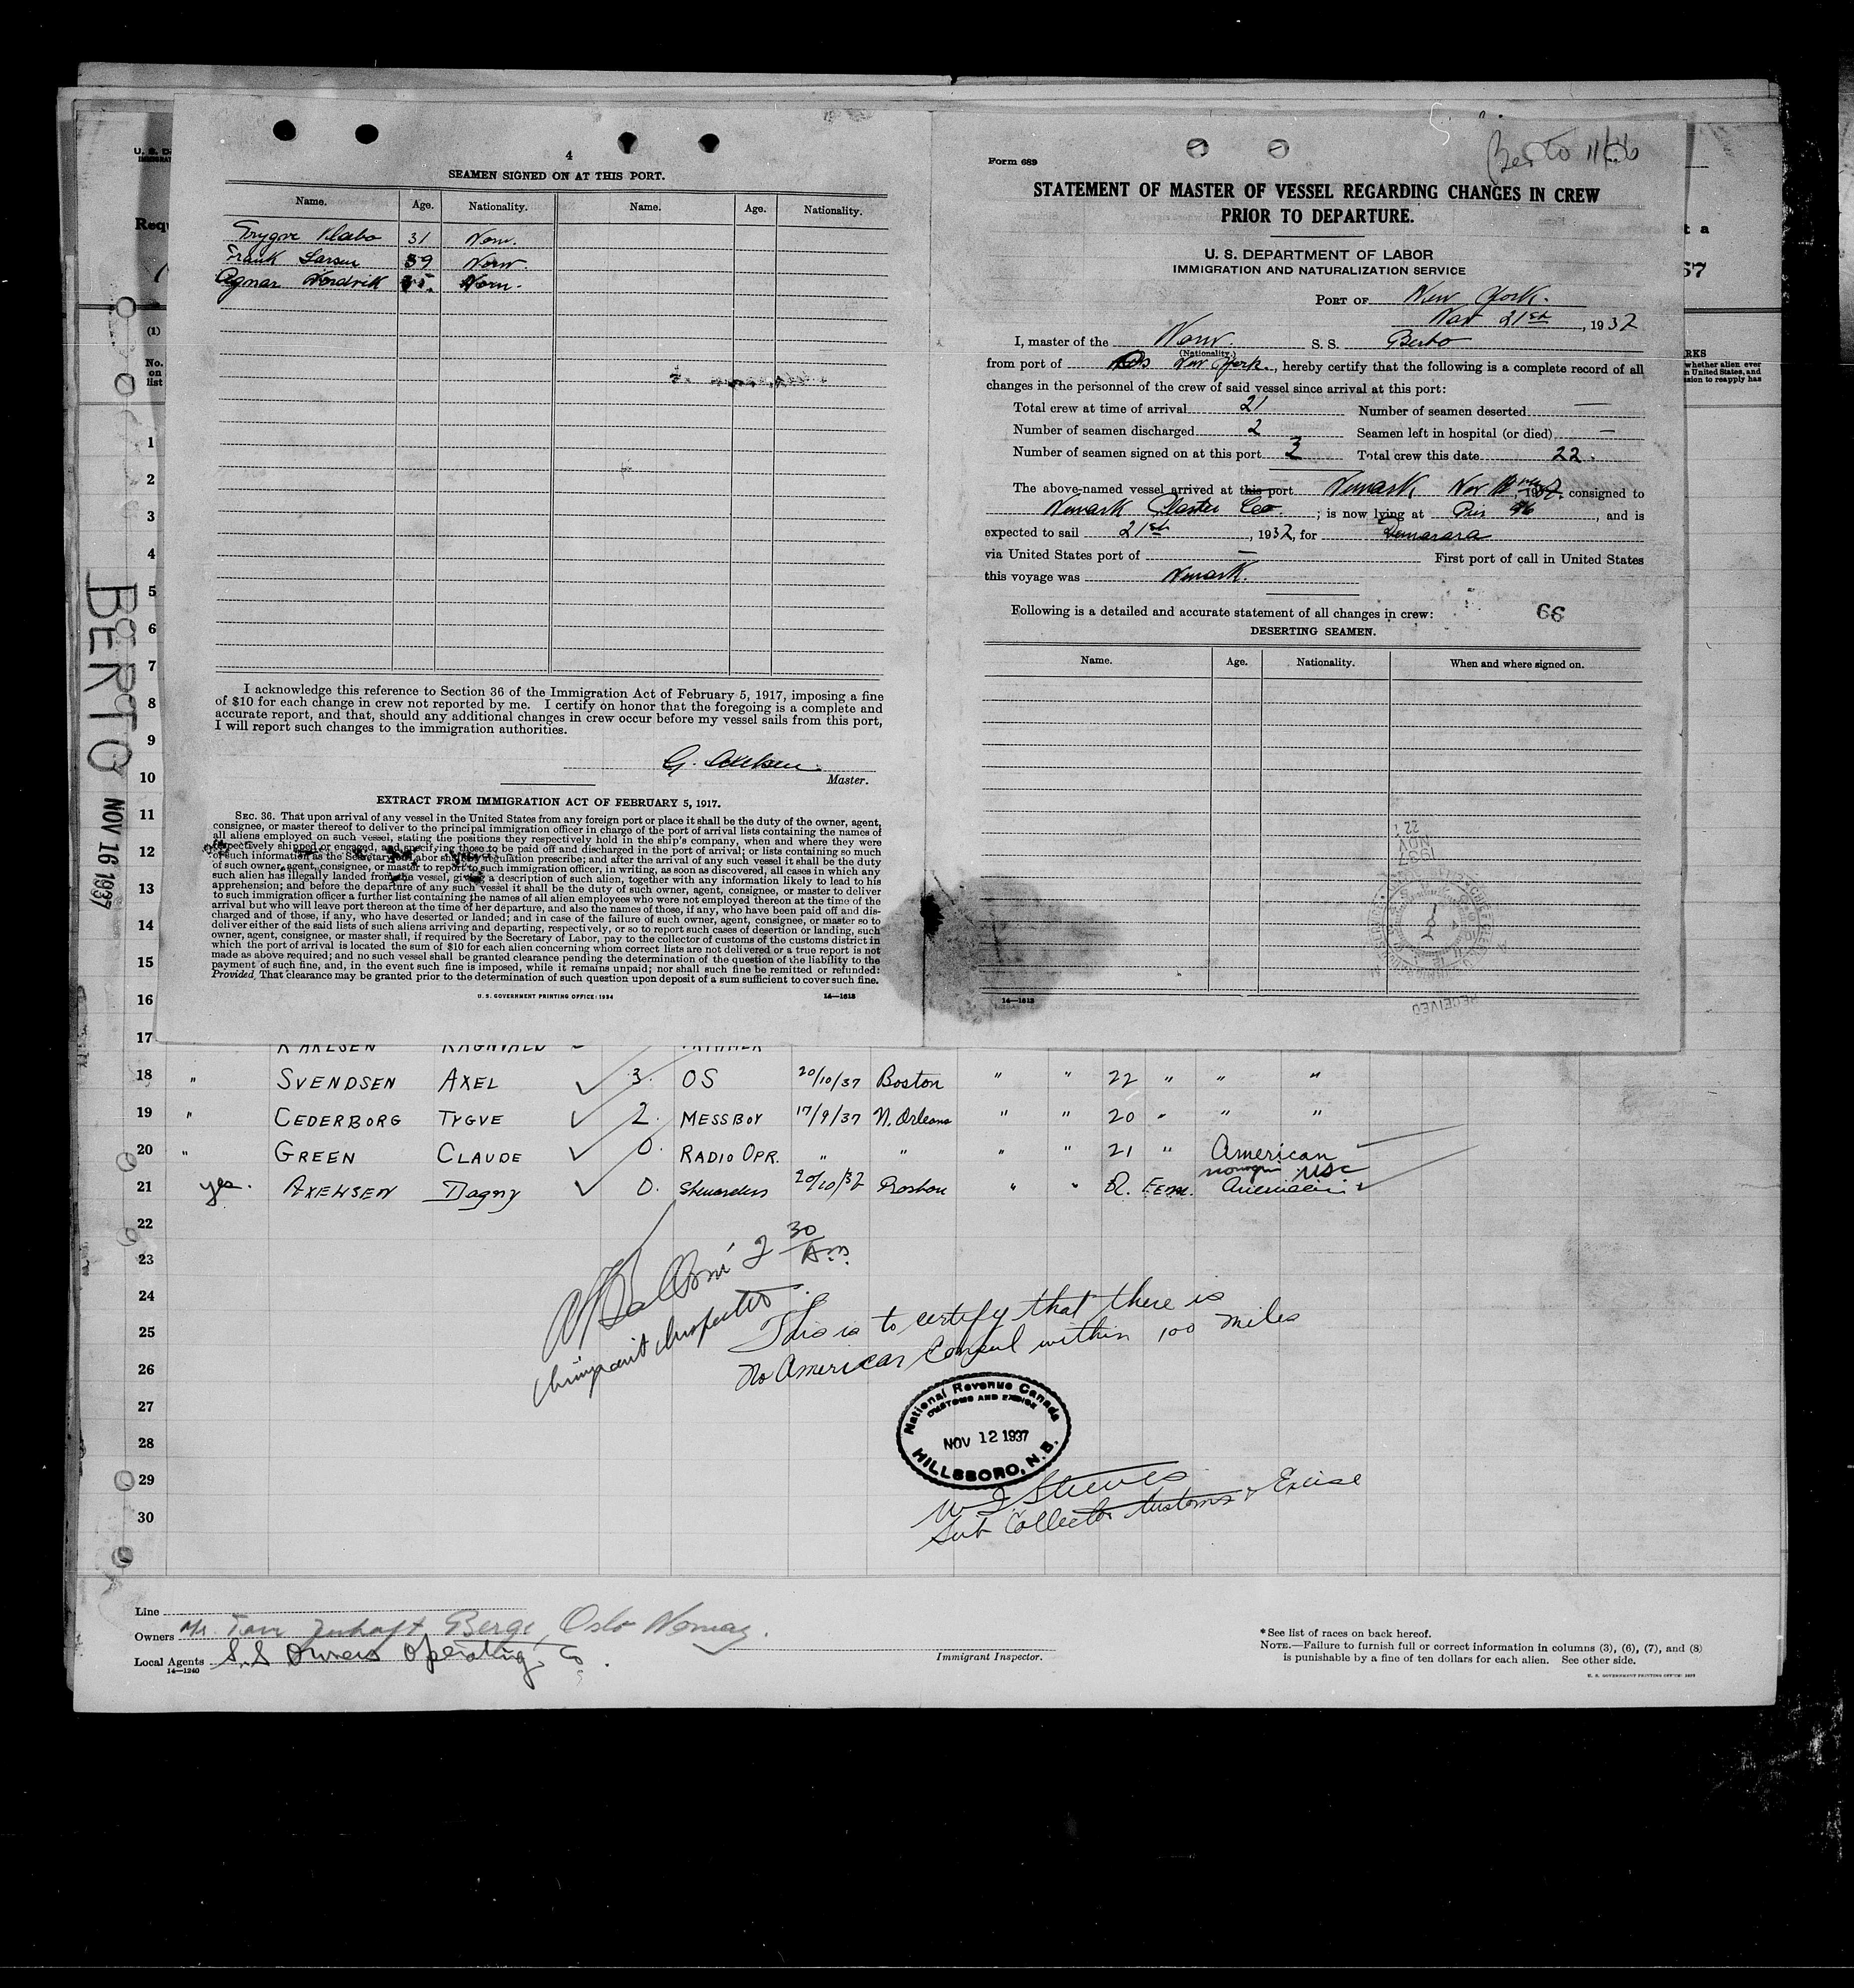 4
SEAMEN SIGNED ON AT THIS PORT.
Name. Age. Nationality. Name. Age. Nationality.
Trygve Klabo 31 Norw.
Frank Larsen 39 Norw.
Norw.
I acknowledge this reference to Section 36 of the Immigration Act of February 5, 1917, imposing a fine
of $10 for each change in crew not reported by me. I certify on honor that the foregoing is a complete and
accurate report, and that, should any additional changes in crew occur before my vessel sails from this port,
I will report such changes to the immigration authorities.
G.
Master.
EXTRACT FROM IMMIGRATION ACT OF FEBRUARY 5, 1917.
SEC. 36. That upon arrival of any vessel in the United States from any foreign port or place it shall be the duty of the owner, agent,
consignee, or master thereof to deliver to the principal immigration officer in charge of the port of arrival lists containing the names of
all aliens employed on such vessel, stating the positions they respectively hold in the ship's company, when and where they were
respectively shipped or engaged, and specifying those to be paid off and discharged in the port of arrival; or lists containing so much
of such information as the Secretary of Labor shall by regulation prescribe; and after the arrival of any such vessel it shall be the duty
of such owner, agent, consignee, or master to report to such immigration officer, in writing, as soon as discovered, all cases in which any
such alien has illegally landed from the vessel, giving a description of such alien, together with any information likely to lead to his
apprehension; and before the departure of any such vessel it shall be the duty of such owner, agent, consignee, or master to deliver
to such immigration officer a further list containing the names of all alien employees who were not employed thereon at the time of the
arrival but who will leave port thereon at the time of her departure, and also the names of those, if any, who have been paid off and dis-
charged and of those, if any, who have deserted or landed; and in case of the failure of such owner, agent, consignee, or master so to
deliver either of the said lists of such aliens arriving and departing, respectively, or so to report such cases of desertion or landing, such
owner, agent, consignee, or master shall, if required by the Secretary of Labor, pay to the collector of customs of the customs district in
which the port of arrival is located the sum of $10 for each alien concerning whom correct lists are not delivered or a true report is not
made as above required; and no such vessel shall be granted clearance pending the determination of the question of the liability to the
payment of such fine, and, in the event such fine is imposed, while it remains unpaid; nor shall such fine be remitted or refunded:
Provided, That clearance may be granted prior to the determination of such question upon deposit of a sum sufficient to cover such fine.
U. S. GOVERNMENT PRINTING OFFICE: 1934 14—1613
Form 689
Berto 11/16
STATEMENT OF MASTER OF VESSEL REGARDING CHANGES IN CREW
PRIOR TO DEPARTURE.
U. S. DEPARTMENT OF LABOR
IMMIGRATION AND NATURALIZATION SERVICE
PORT OF New York.
Nov 21st, 1937
I, master of the Norw. S. S. Berto
(Nationality.)
from port of New York., hereby certify that the following is a complete record of all
changes in the personnel of the crew of said vessel since arrival at this port:
Total crew at time of arrival 21 Number of seamen deserted —
Number of seamen discharged 2 Seamen left in hospital (or died) —
Number of seamen signed on at this port 3 Total crew this date 22.
The above-named vessel arrived at this port Newark Nov 1937, consigned to
Newark Plaster Co.; is now lying at Pier 96, and is
expected to sail 21st, 1937, for Demarara
via United States port of — First port of call in United States
this voyage was Newark.
Following is a detailed and accurate statement of all changes in crew: 66
DESERTING SEAMEN.
Name. Age. Nationality. When and where signed on.
14—1613
RECEIVED
NOV 22
1937
BERTO NOV 16 1937
(1)
No.
on
list
1
2
3
4
5
6
7
8
9
10
11
12
13
14
15
16
17 KARLSEN RAGNVALD
18 " SVENDSEN AXEL 3. OS 20/10/37 Boston " " 22 " " "
19 " CEDERBORG TYGVE 2. MESSBOY 17/9/37 N. Orleans " " 20 " " "
20 " GREEN CLAUDE 0. RADIO OPR. " " " " 21 " American
21 yes. AXELSEN Dagny 0. Stewardess 20/10/37 Boston " " Fem. USC
22
23
24
25
26
27
28
29
30
2 30 Am.
Immigrant Inspector
This is to certify that there is
no American Consul within 100 miles
National Revenue Canada
CUSTOMS AND EXCISE
NOV 12 1937
HILLSBORO, N.B.
W J Steeves
Sub Collector Customs & Excise
Line
Owners Mr. Berge, Oslo Norway.
Local Agents S.S Owners Operating Co.
14—1240
Immigrant Inspector.
* See list of races on back hereof.
NOTE.—Failure to furnish full or correct information in columns (3), (6), (7), and (8)
is punishable by a fine of ten dollars for each alien. See other side.